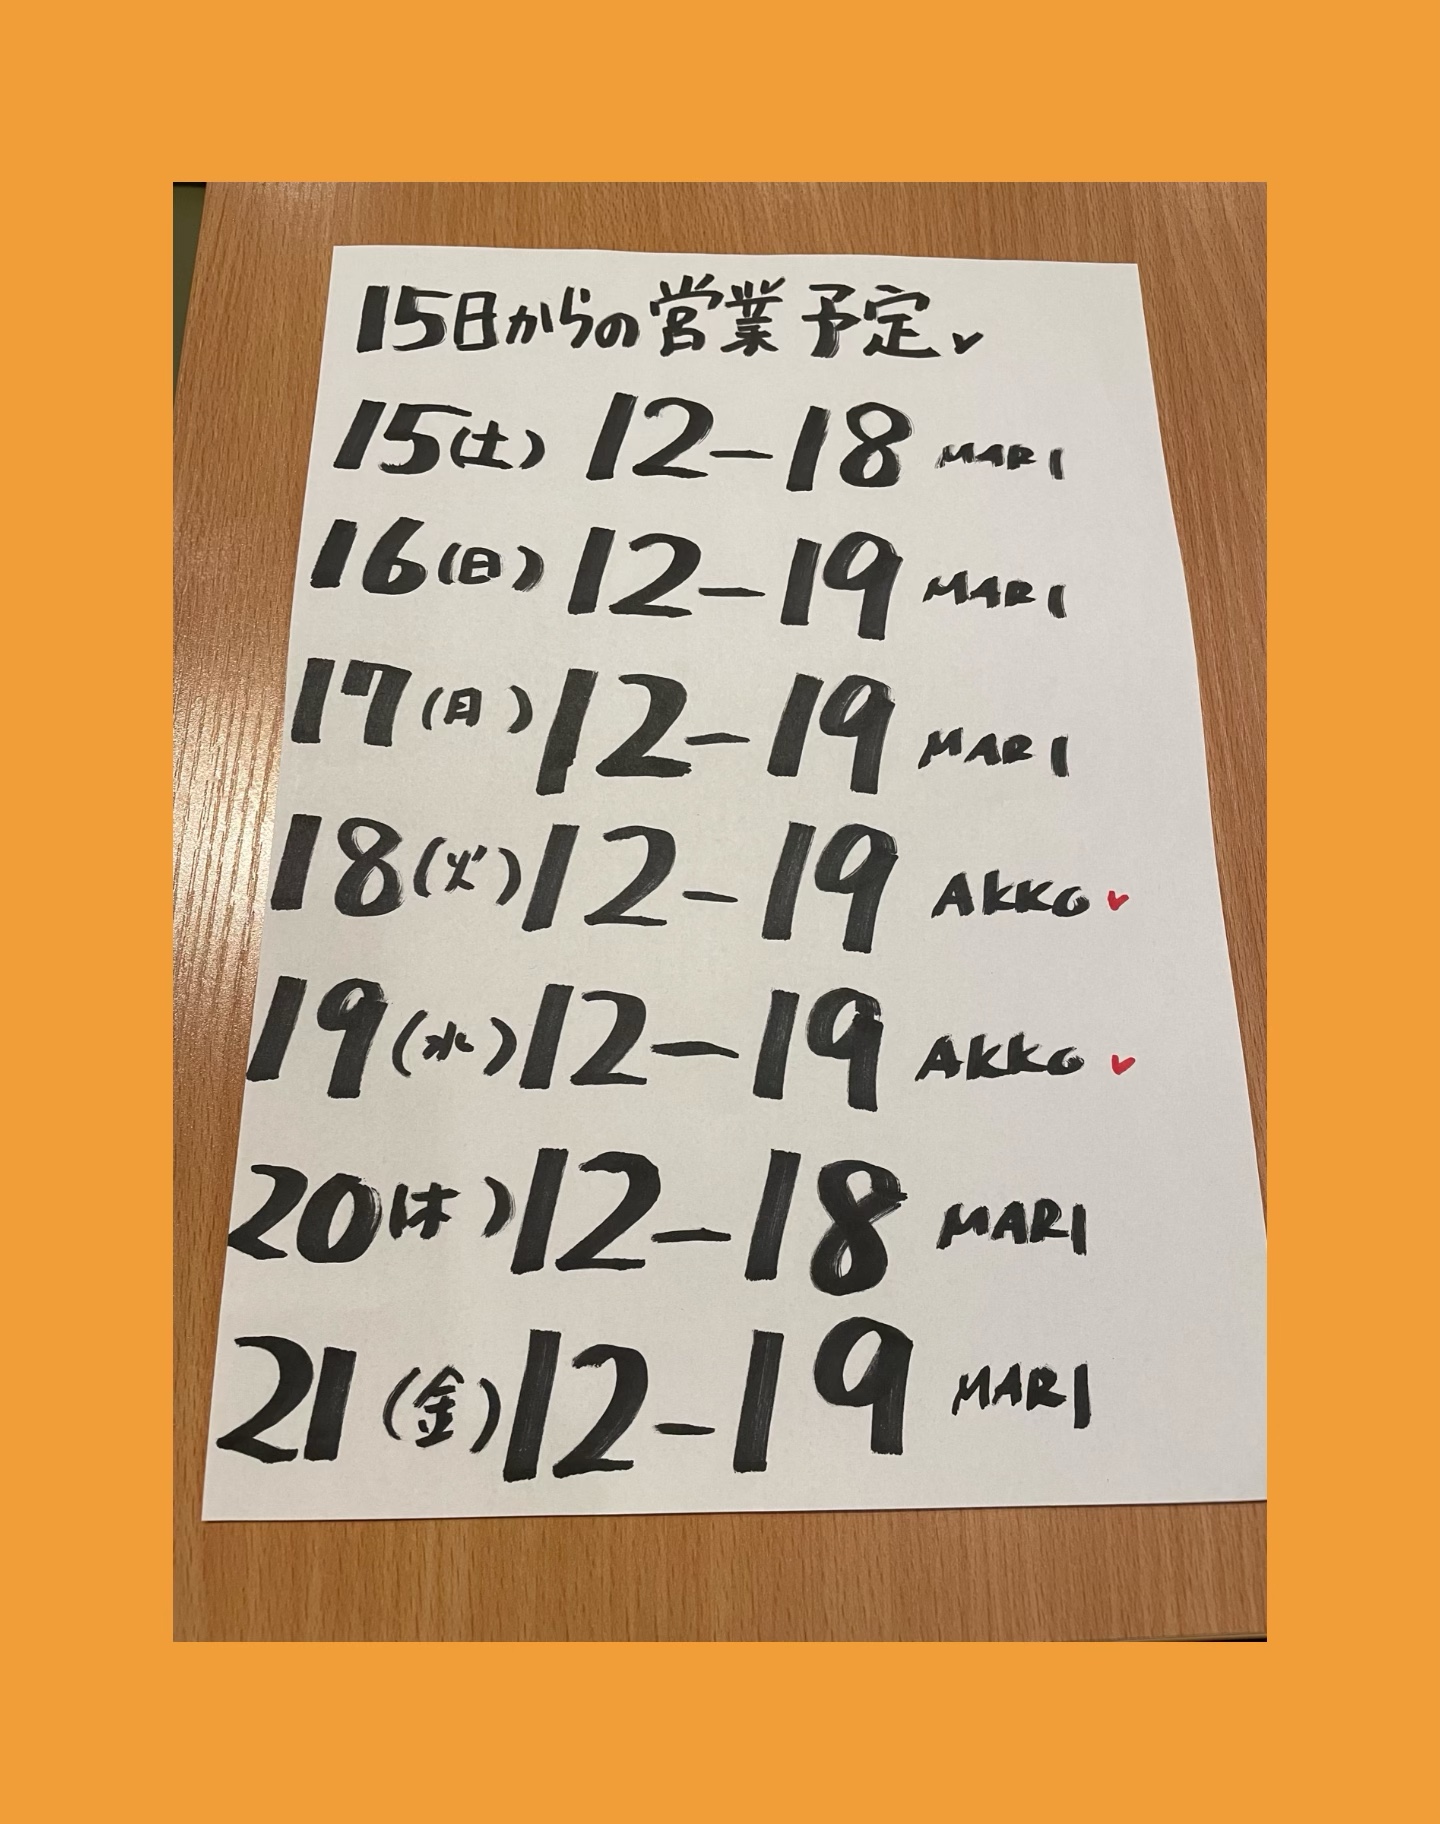 15日からの営業予定♥
15(土) 12-18 MARI
16(日) 12-19 MARI
17(月) 12-19 MARI
18(火) 12-19 AKKO♥
19(水) 12-19 AKKO♥
20(木) 12-18 MARI
21(金) 12-19 MARI